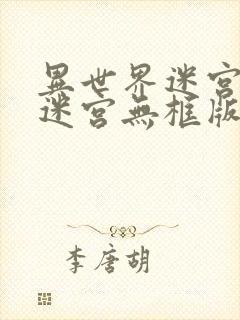 異世界迷宮
迷宮無框版
李唐胡